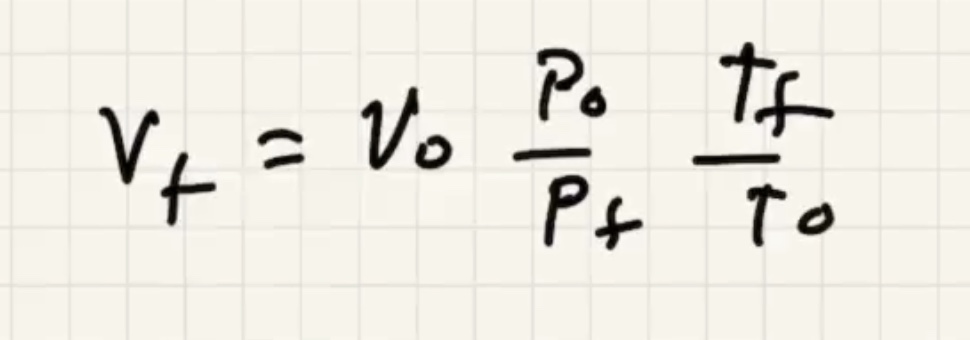 V_f = V_0 \frac{P_0}{P_f} \frac{T_f}{T_0}